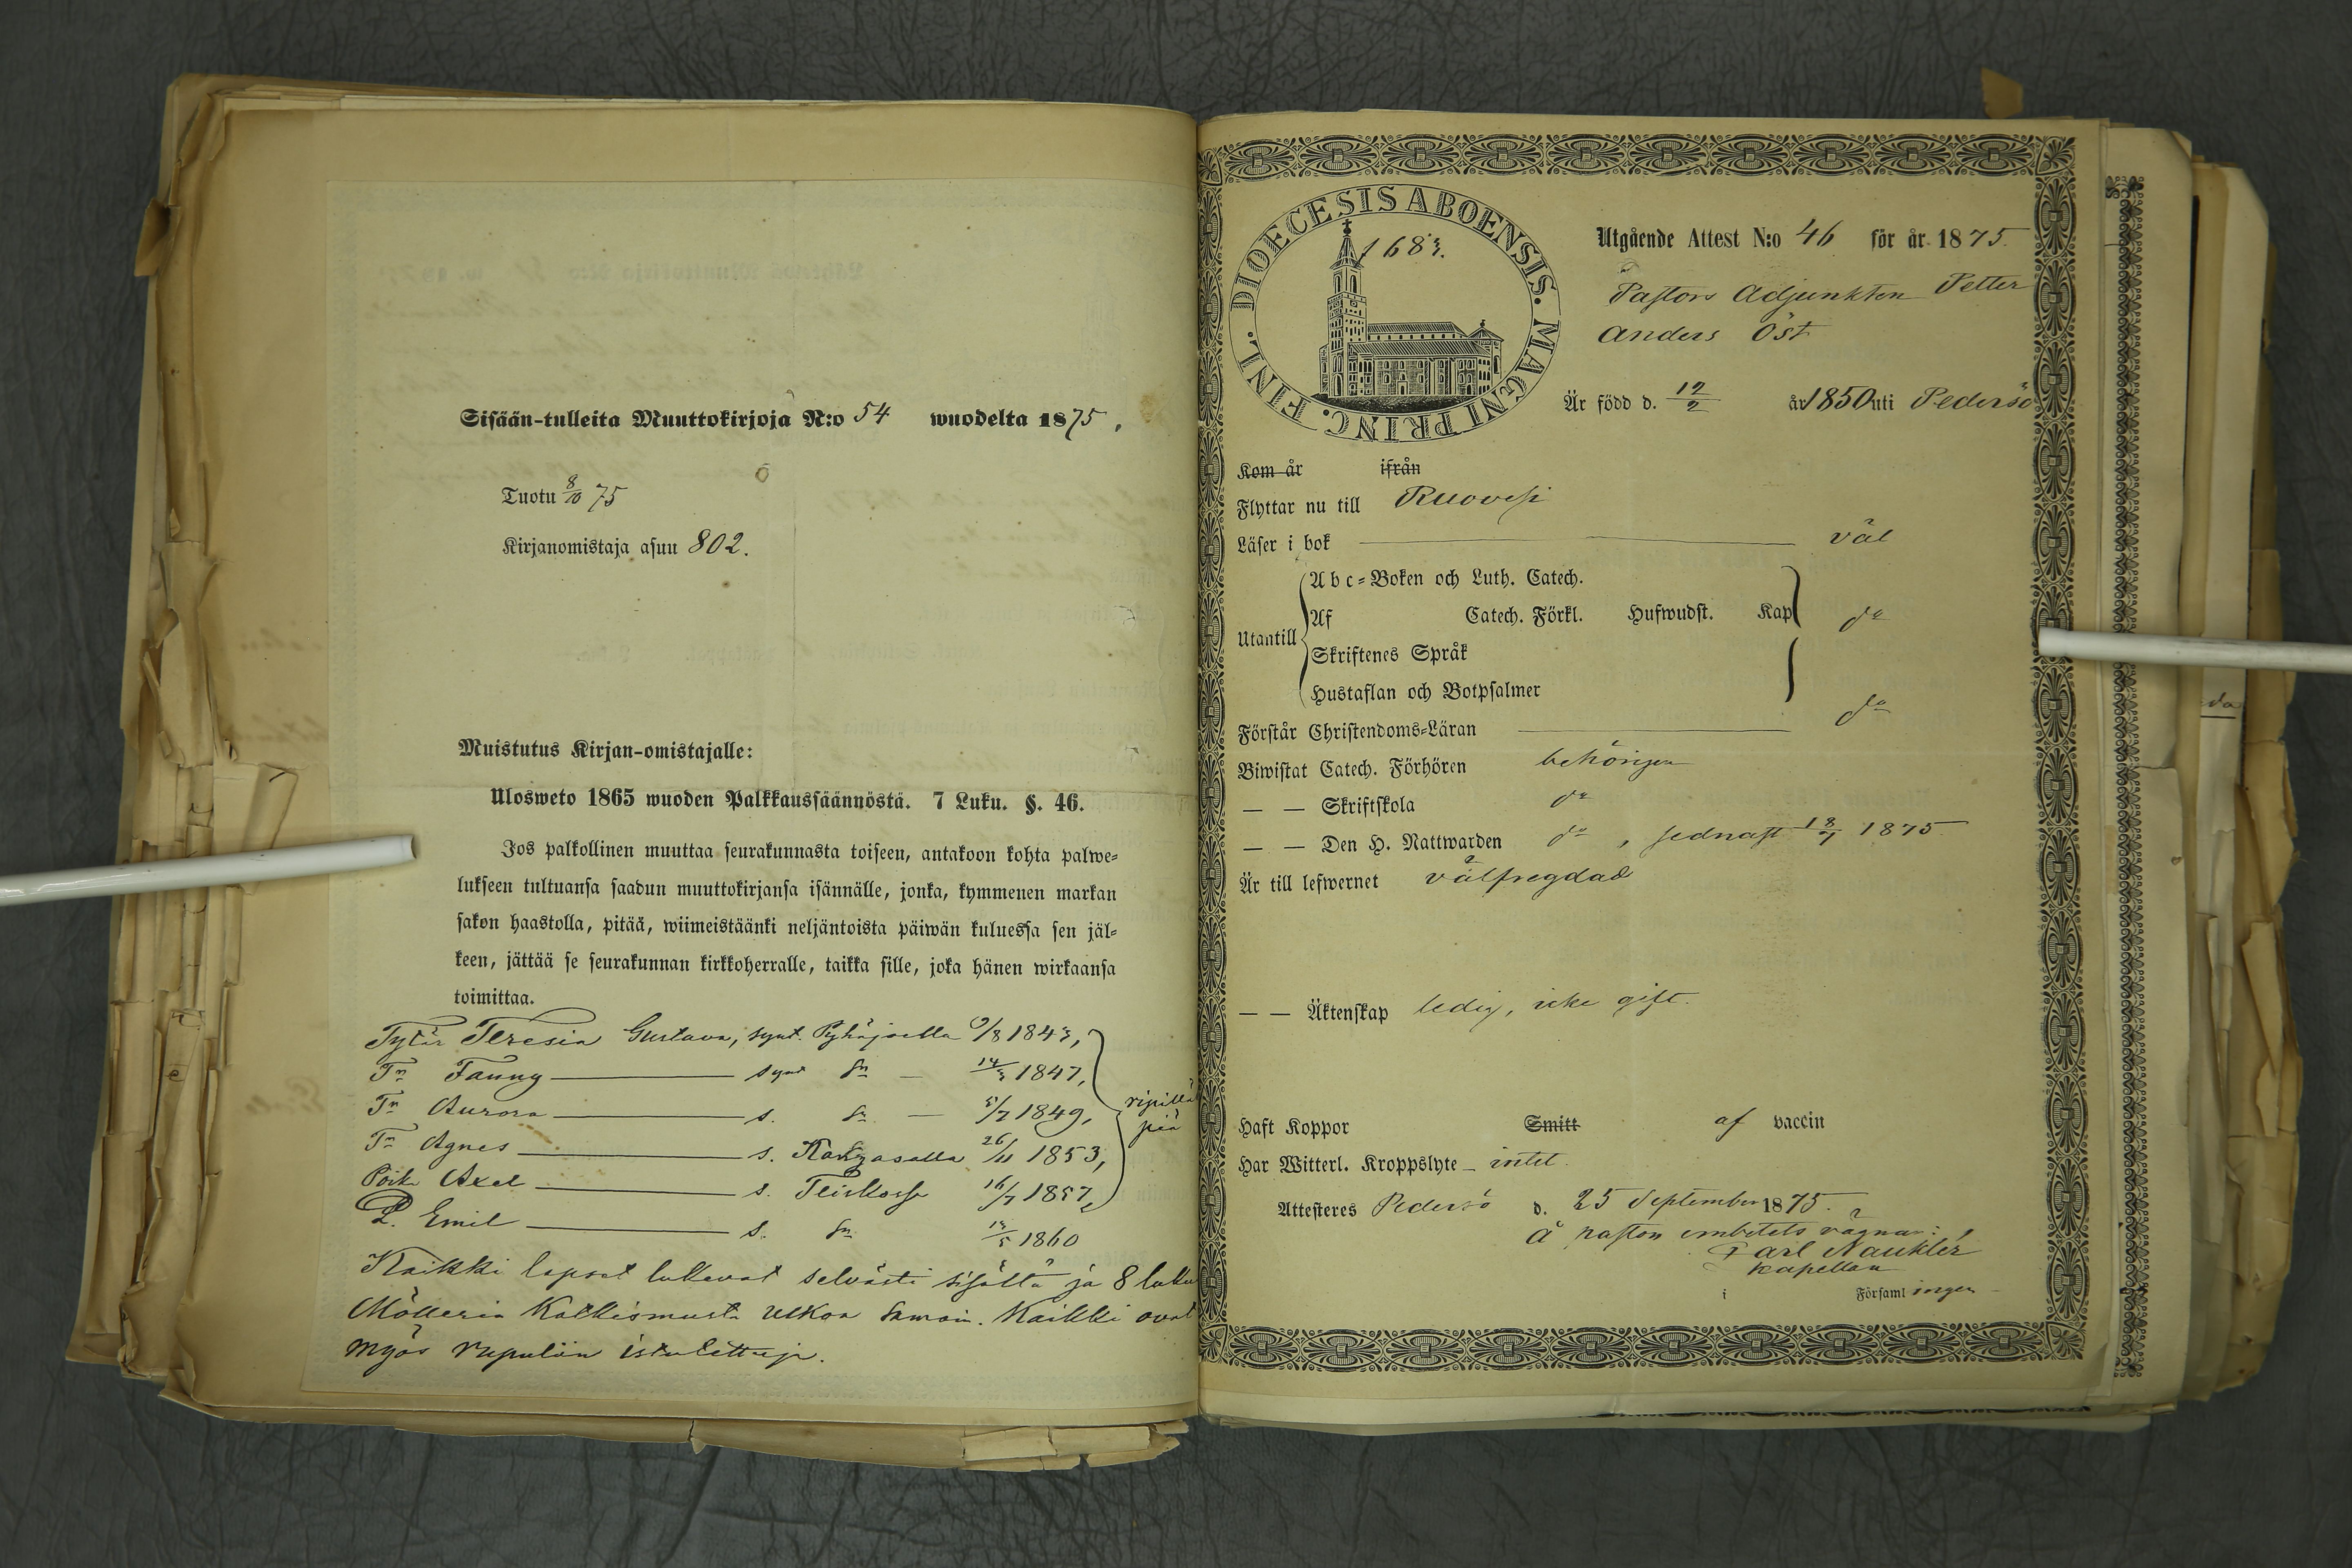 Sisään-tulleita Muuttokirjoja N:o 54 wuodelta 1875,
Tuotu 8/10 75
Kirjanomistaja asuu 802.
Muistutus Kirjan-omistajalle:
Ulosweto 1865 wuoden Palkkaussäännöstä. 7 Luku. §. 46.
Jos palkollinen muuttaa seurakunnasta toiseen, antakoon kohta palwe-
lukseen tultuansa saadun muuttokirjansa isännälle, jonka, kymmenen markan
sakon haastolla, pitää, wiimeistäänki neljäntoista päiwän kuluessa sen jäl-
keen, jättää se seurakunnan kirkkoherralle, taikka sille, joka hänen wirkaansa
toimittaa.
Tytär Teresia Gustava, synt. Pyhäjoella 9/8 1843,
Tr Fanny — synt dn — 14/3 1847,
Tr Aurora — s. dn — 5/7 1849,
Tr Agnes — s. Kangasalla 26/11 1853,
Poika Axel — s. Teiskossa 16/7 1857,
P. Emil — s. dn 13/5 1860
ripillä
Kaikki lapset lukevat selvästi sisältä ja 8 luku
Möllerin Katkismusta ulkoa samoin. Kaikki ovat
myös rupulin istutettuja.
DIOECESIS ABOENSIS. MAGNI PRINC. FINL.
1683.
Utgående Attest N:o 46 för år 1875.
Pastors Adjunkten Petter
Anders Öst
Är född d. 12/2 år 1850 uti Pedersö
Kom år ifrån
Flyttar nu till Ruovesi
Läser i bok — väl
Utantill
Abc-Boken och Luth. Catech.
Af Catech. Förkl. Hufwudst. Kap do
Skriftenes Språk
Hustaflan och Botpsalmer
Förstår Christendoms-Läran — do
Biwistat Catech. Förhören behörigen
— — Skriftskola do
— — Den H. Nattwarden do, sednast 18/7 1875
Är till lefwernet välfregdad
— — Äktenskap ledig, icke gift.
Haft Koppor Smitt af vaccin
Har Witterl. Kroppslyte — intet.
Attesteres Pedersö d. 25 September 1875.
Å pastors embetets vägnar:
Carl Nauklér
Kapellan
i Församl ingen